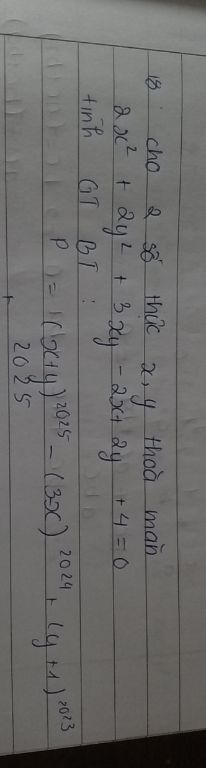 18. cho 2 số thực x, y thoả mãn
2x² + 2y² + 3xy - 2x + 2y + 4 = 0
tính GT BT :
P = (x+y)²⁰²⁵ - (3-x)²⁰²⁴ + (y+1)²⁰²³
+
2025